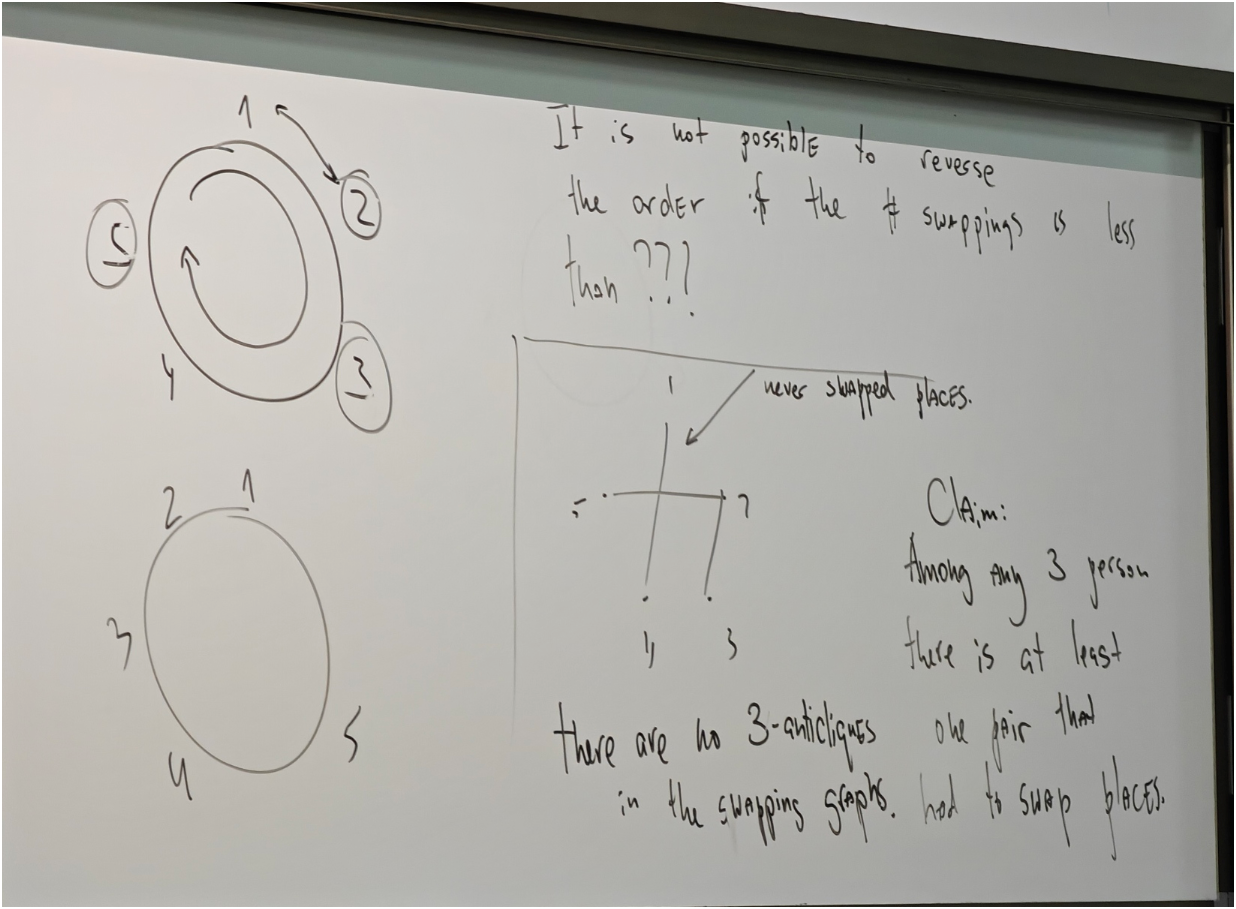 1
2
5
3
4
It is not possible to revesse
the order if the # swappings is less
than ???
1 2
3
4
5
never swapped places.
1
5 2
4 3
Claim:
Among any 3 person
there is at least
one pair that
had to swap places.
there are no 3-anticliques
in the swapping graphs.